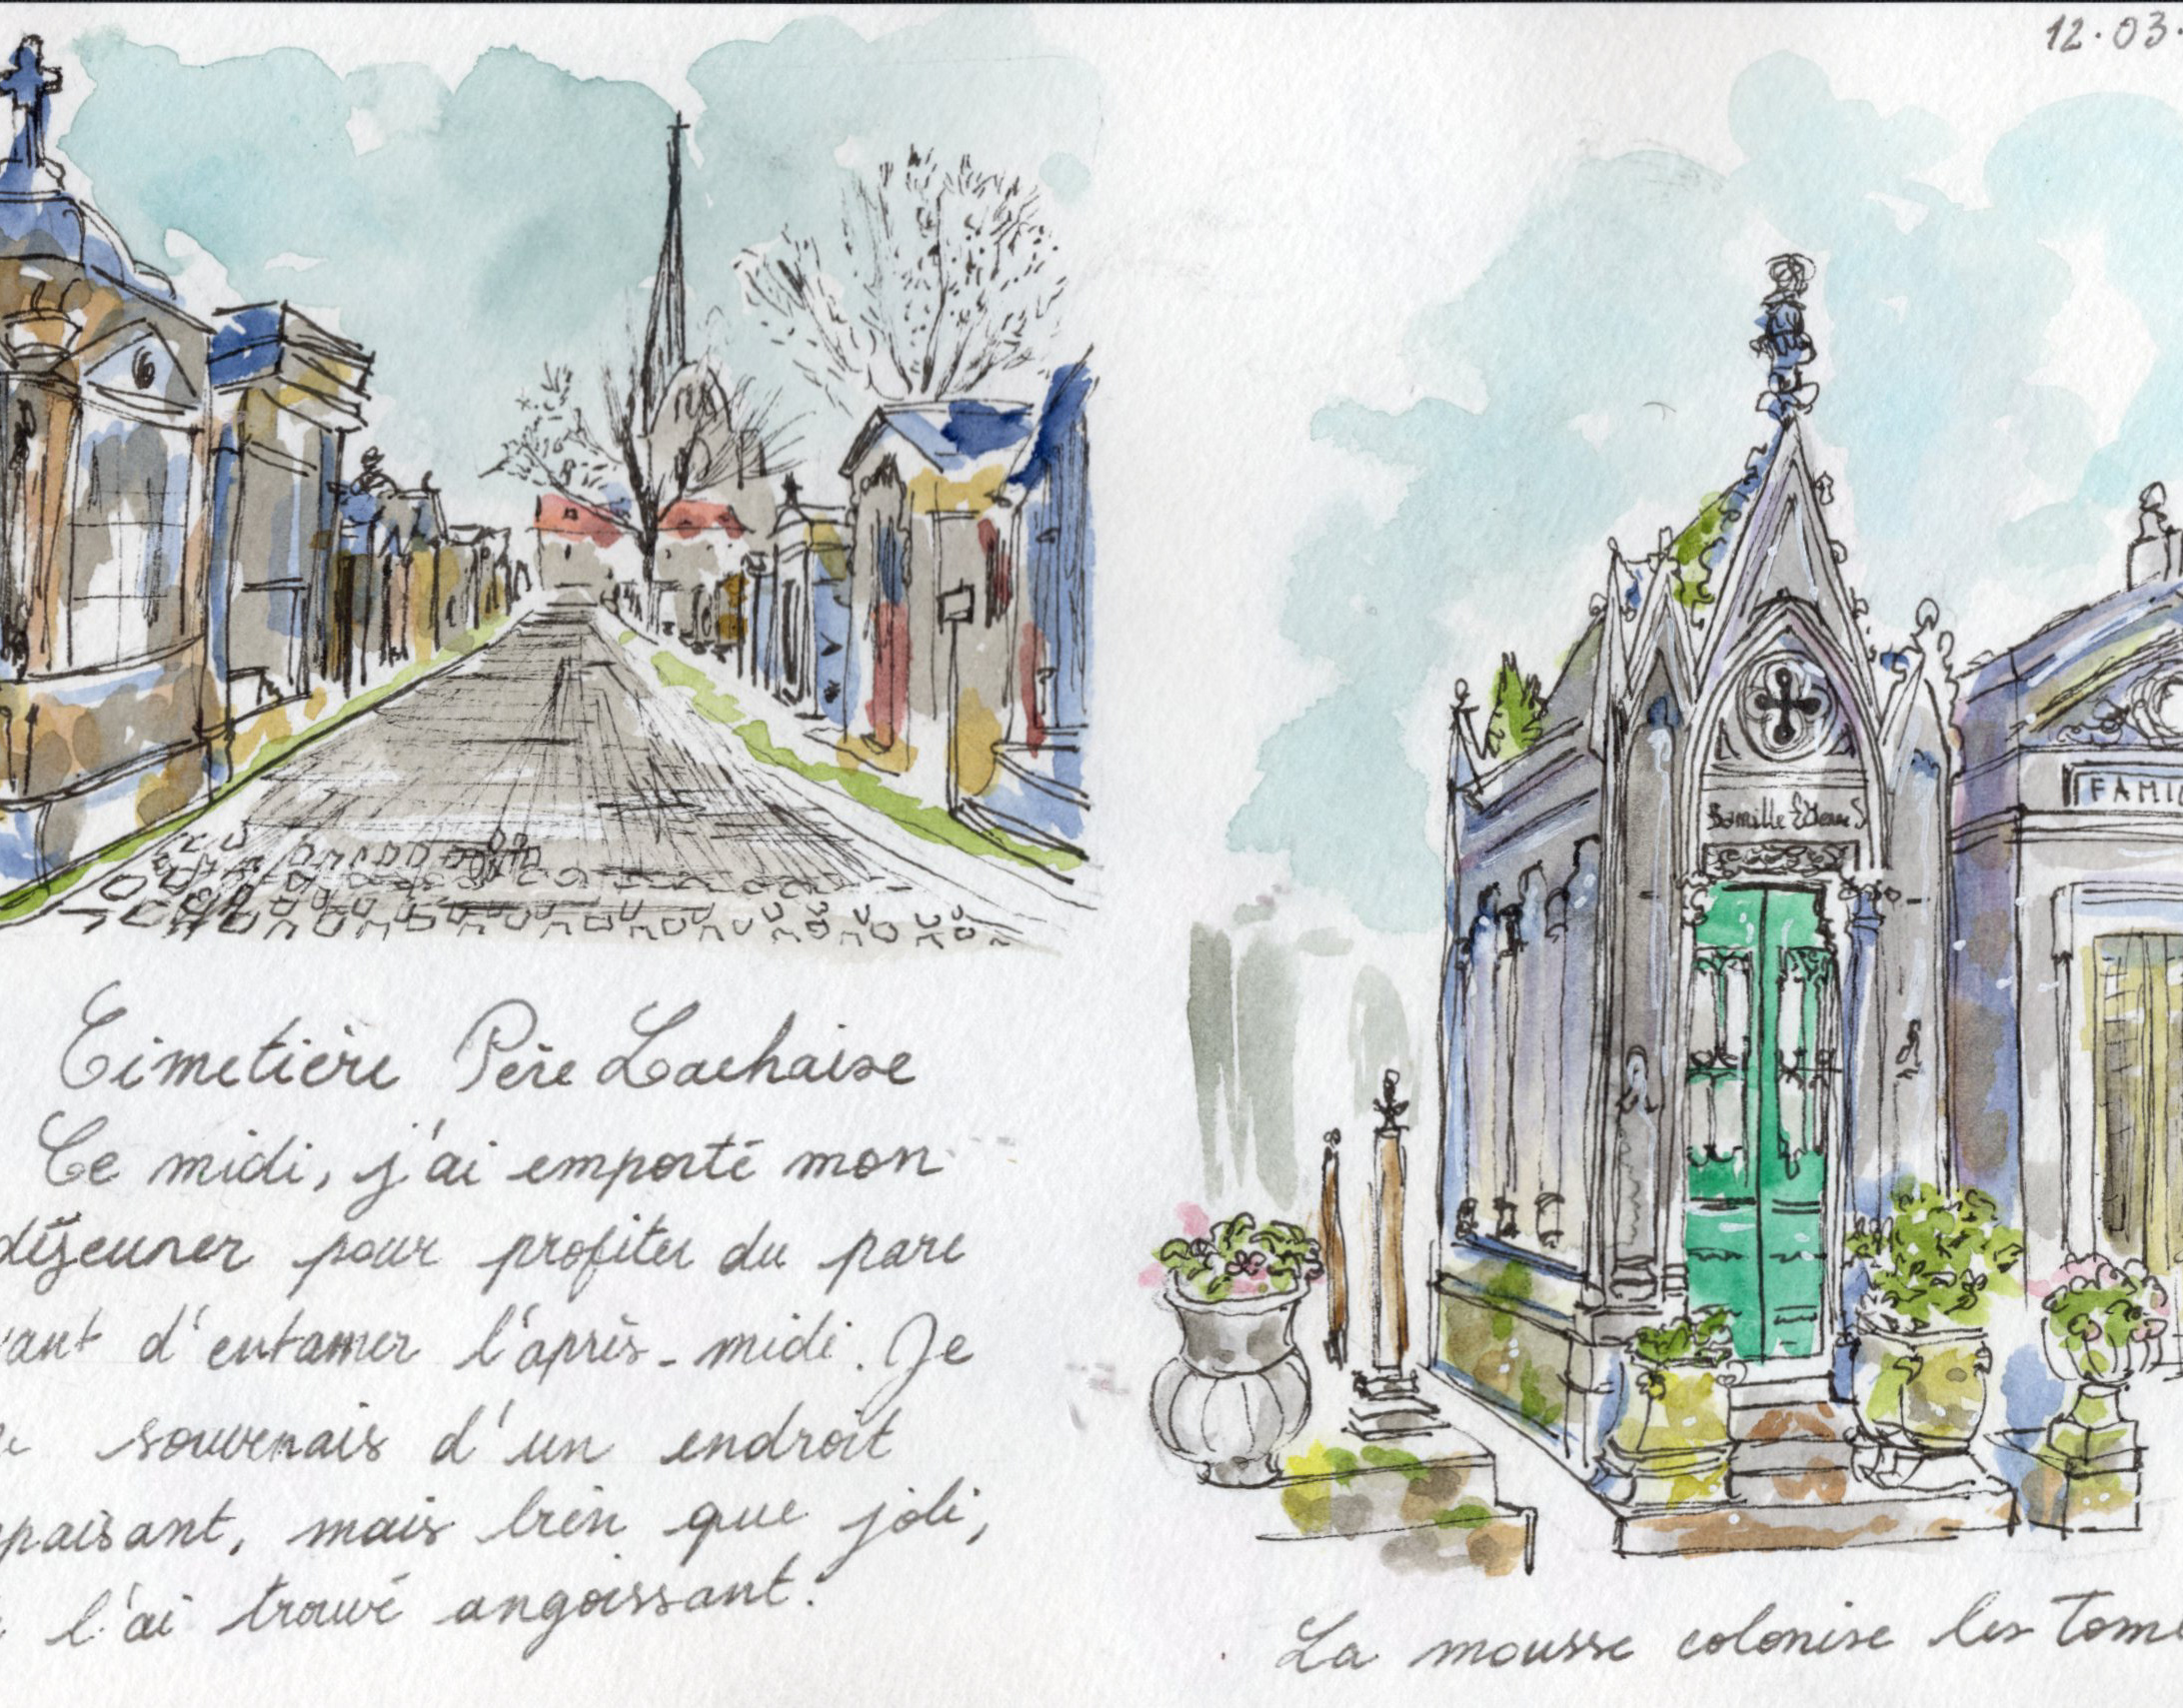 12.03.
Cimetière Père Lachaise
Ce midi, j'ai emporté mon
déjeuner pour profiter du parc
vant d'entamer l'après-midi. Je
souvenais d'un endroit
paisant, mais bien que joli,
l'ai trouvé angoissant.
Famille
FAMIL
La mousse colonise les Tom